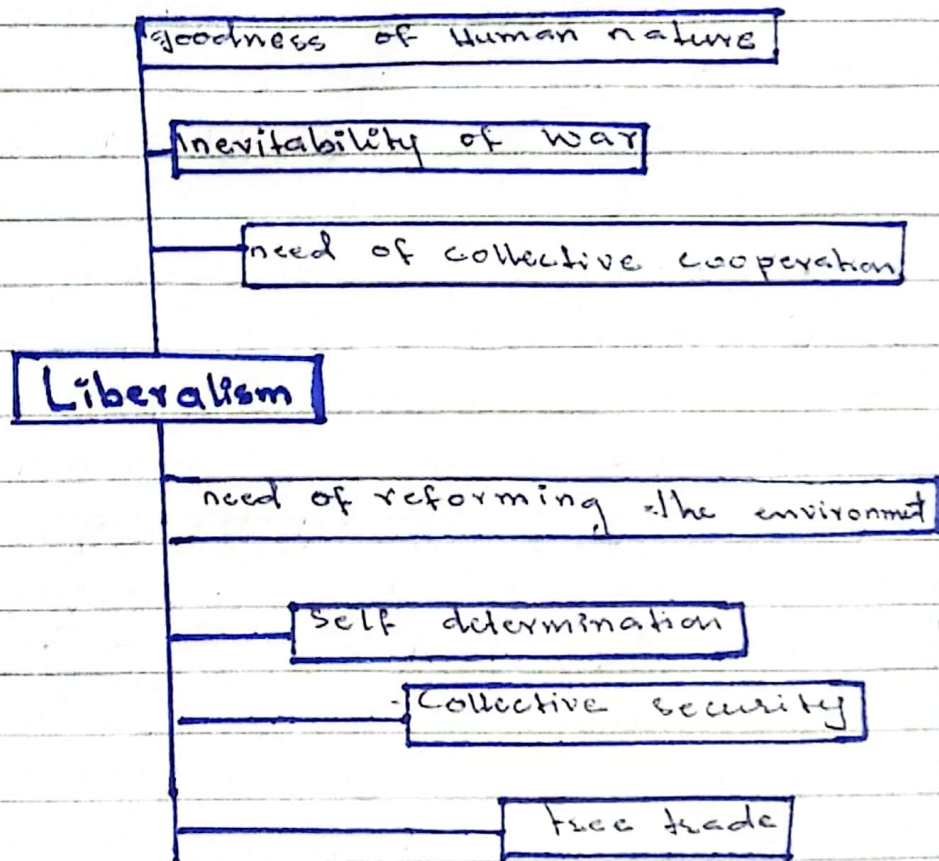 goodness of Human nature
Inevitability of war
need of collective cooperation
Liberalism
need of reforming the environmet
Self determination
Collective security
free trade